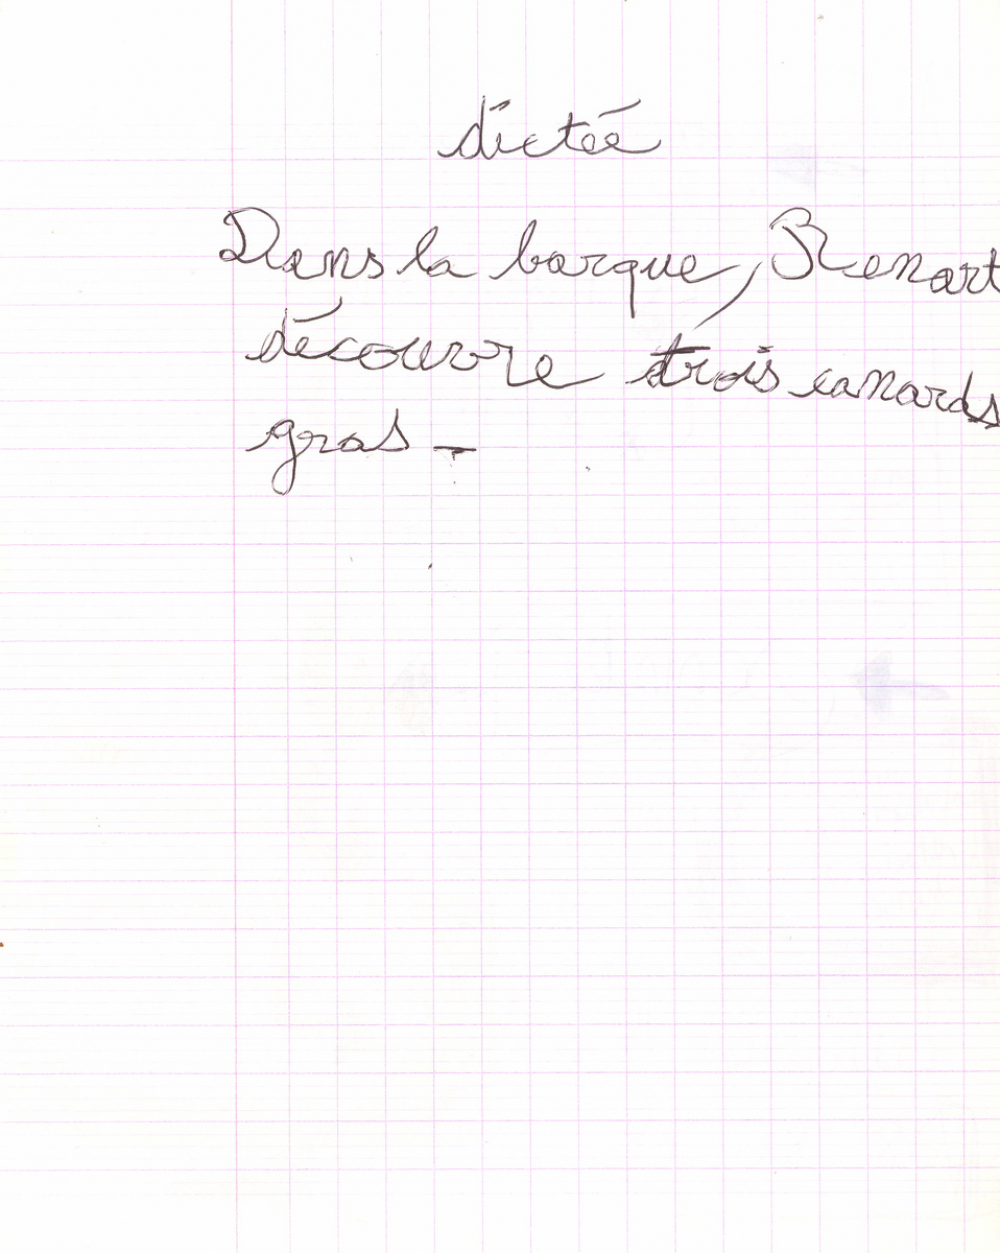 dictée
Dans la barque, Renart
découvre trois canards
gras -